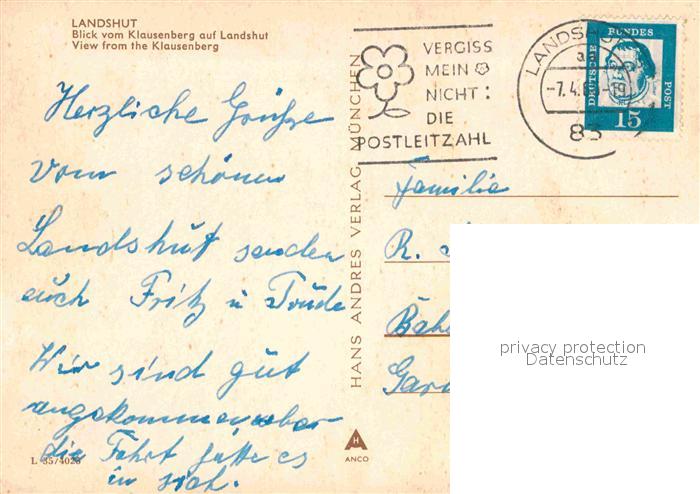 LANDSHUT
Blick vom Klausenberg auf Landshut
View from the Klausenberg
VERGISS
MEIN
NICHT:
DIE
POSTLEITZAHL
LANDSHUT
-7.4.6
83
DEUTSCHE BUNDESPOST
15
Herzliche Grüße
vom schönen
Landshut senden
euch Fritz u Trude
Wir sind gut
angekommen, aber
die Fahrt hatte es
in sich.
Familie
R.
HANS ANDRES VERLAG MÜNCHEN
privacy protection
Datenschutz
L 35/4028
H
A
ANCO